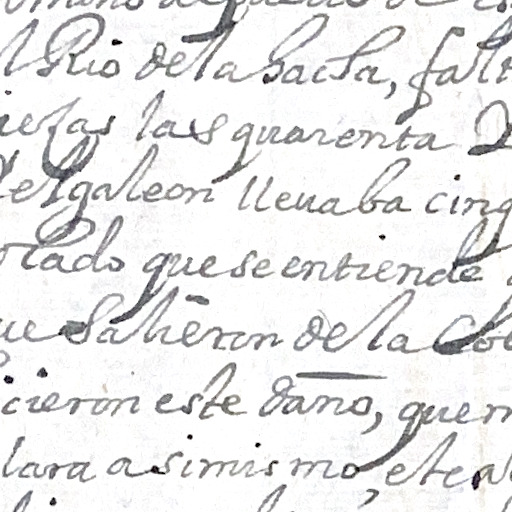 l Rio de la hacha, falt
iezas las quarenta
el galeon lleuaba cinq
otado que se entiende
ue Saliẽron de la Col
icieron este daño, quem
lara asimismo, el